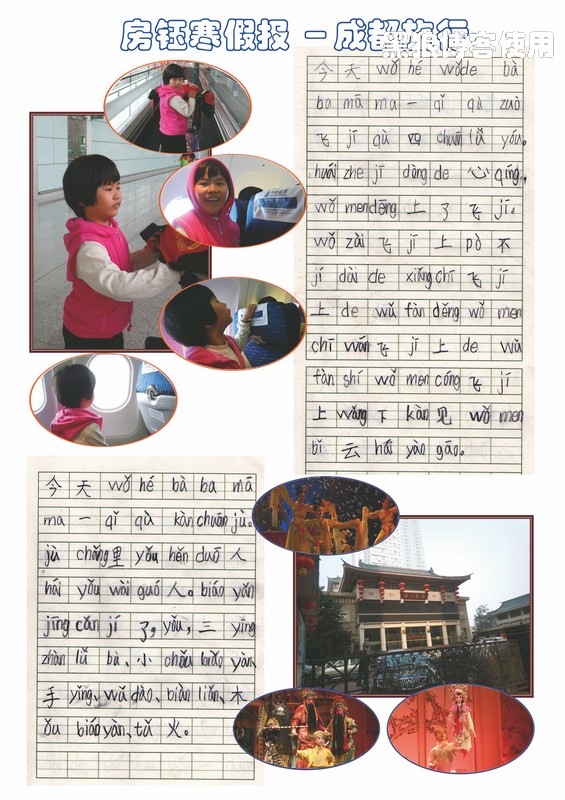 房钰寒假报 - 成都旅行
黑狼博客使用
今天 wǒ hé wǒde bà
ba mā ma 一 qǐ qù zuò
飞 jī qù 四 chuān lǚ yóu。
huái zhe jī dòng de 心 qíng,
wǒ men dēng 上 了 飞 jī。
wǒ zài 飞 jī 上 pò 不
jí dài de xiǎng chī 飞 jī
上 de wǔ fàn děng wǒ men
chī wán 飞 jī 上 de wǔ
fàn shí wǒ men cóng 飞 jī
上 wǎng 下 kàn 见 wǒ men
bǐ 云 hái yào gāo。
今天 wǒ hé bà ba mā
ma 一 qǐ qù kàn chuān jù。
jù chǎng 里 yǒu hěn duō 人
hái yǒu wài guó 人。biáo yǎn
jīng cǎn jí 了,yǒu,三 yīng
zhàn lǚ bà、小 chǒu biǎo yàn、
手 yǐng、wǔ dǎo、biàn liǎn、木
ǒu biáo yàn、tǔ 火。